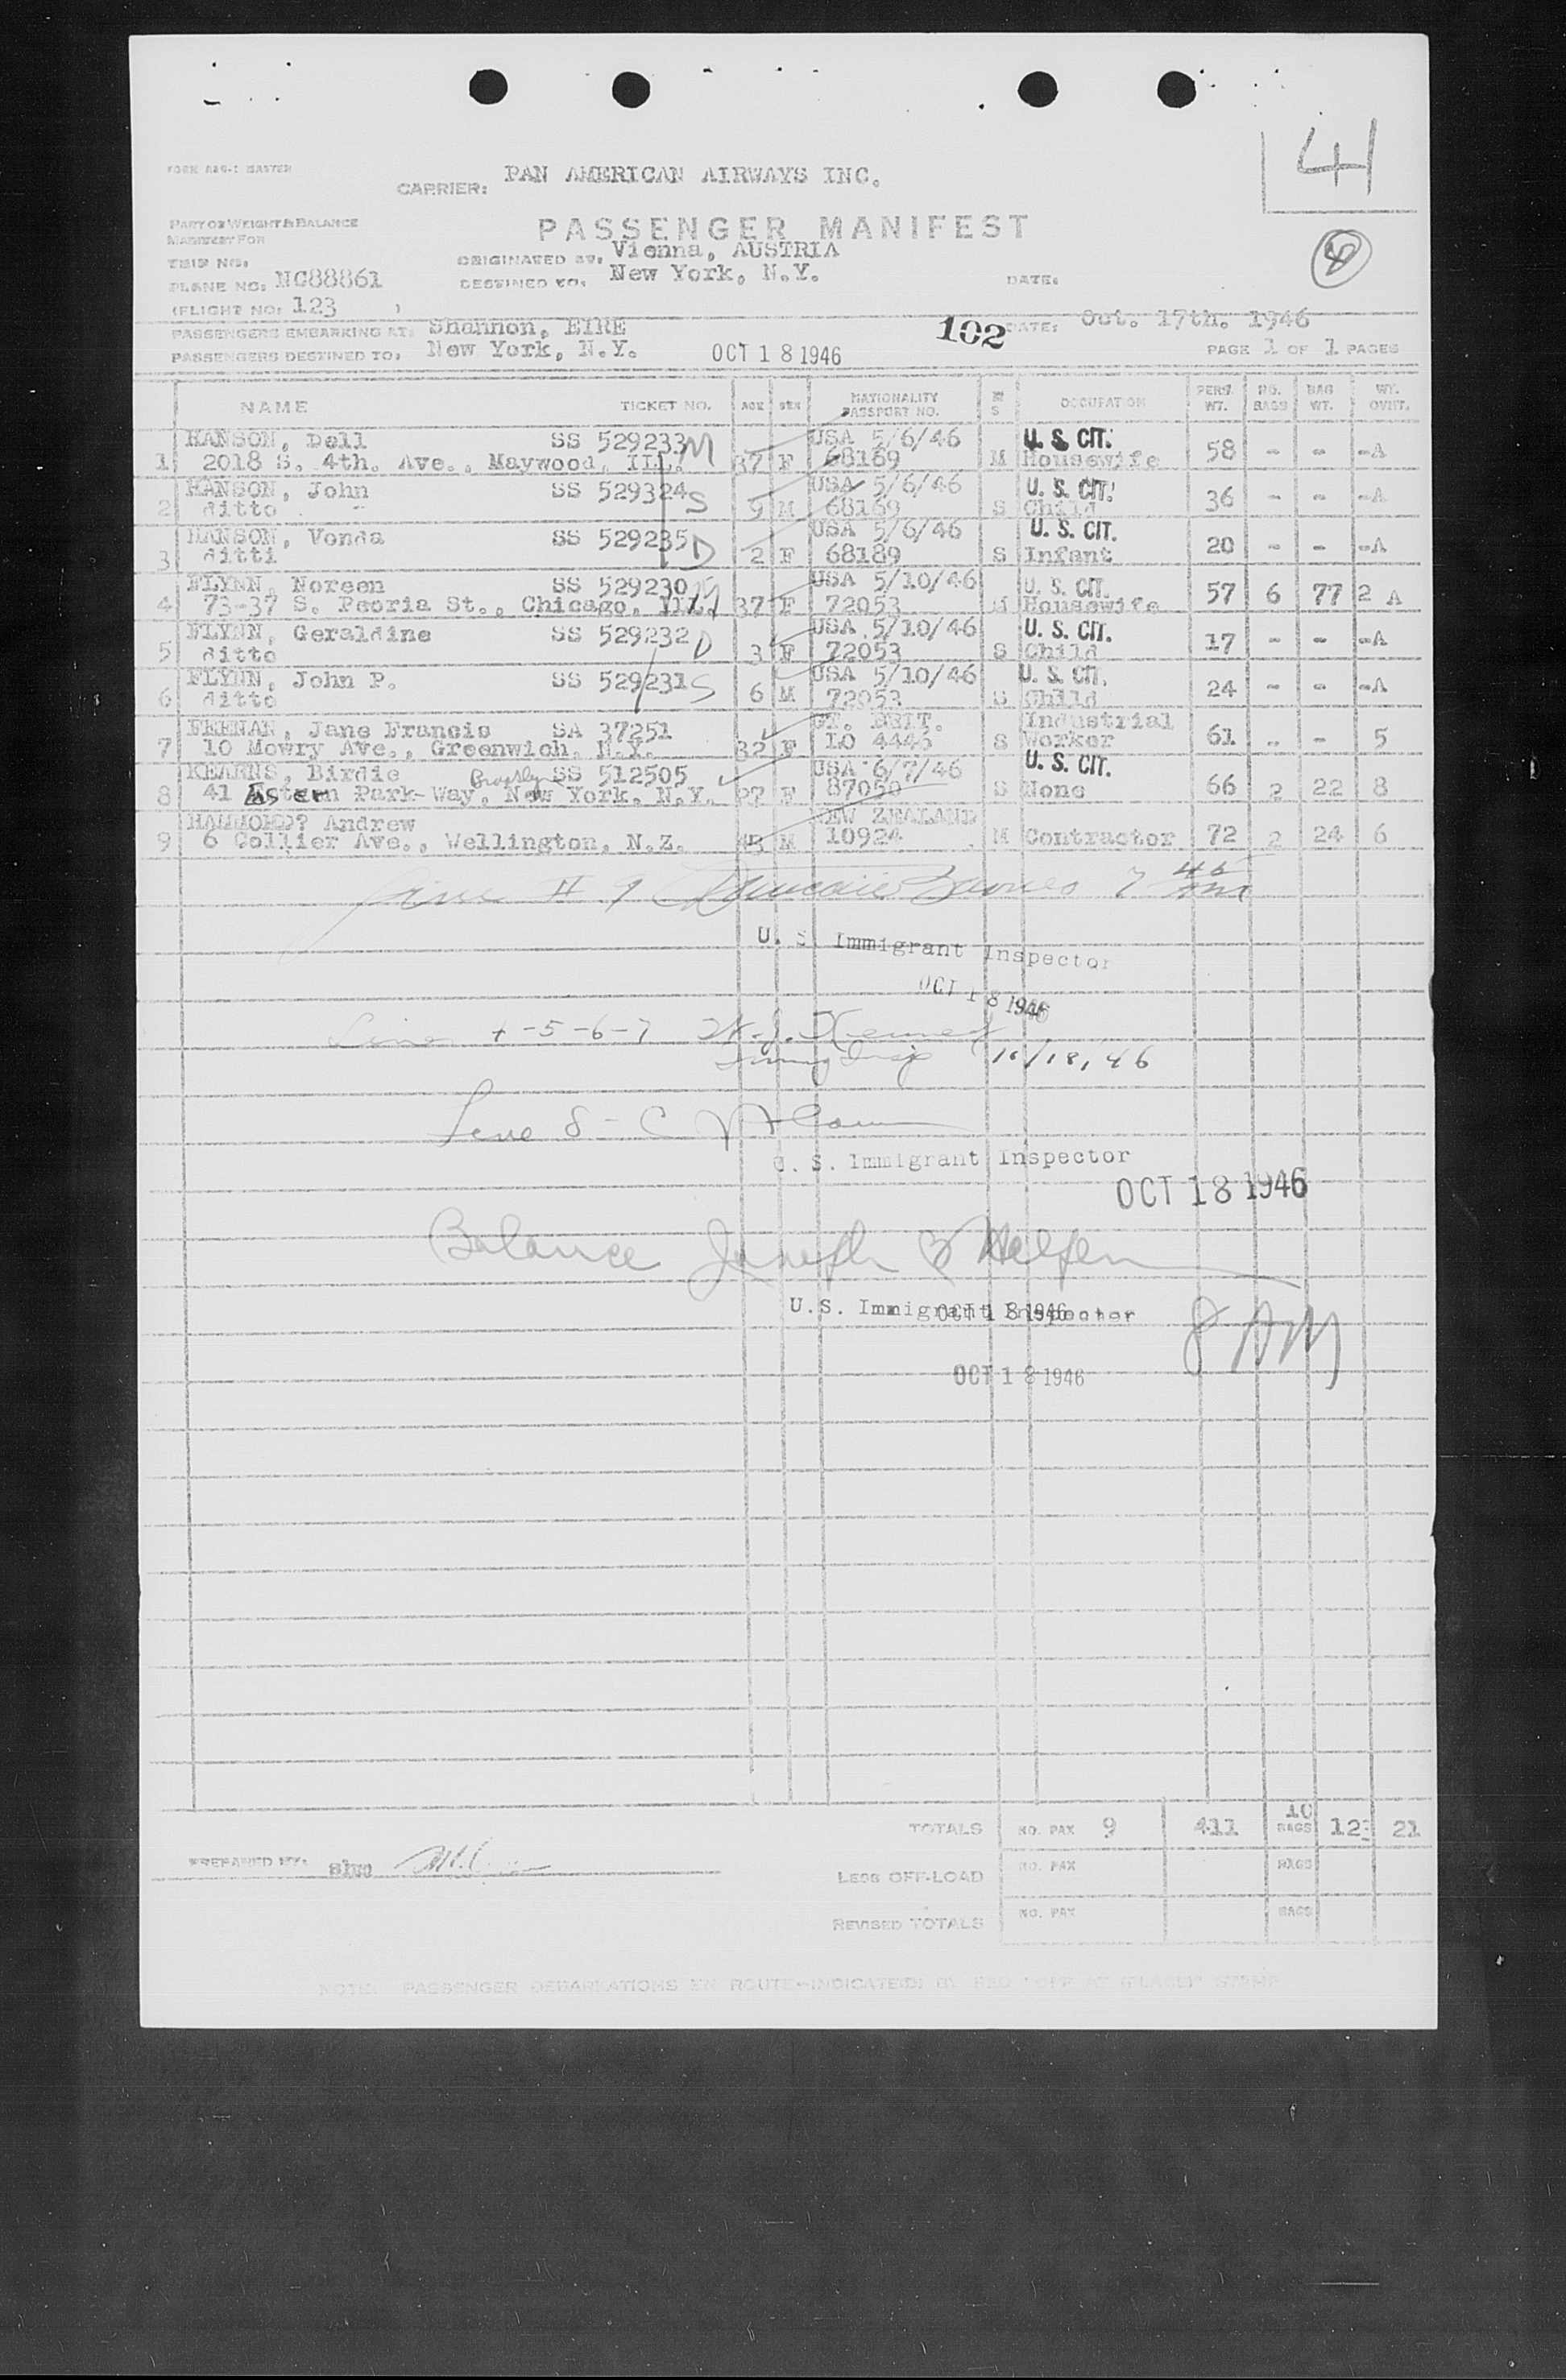 41
FORM ABS-1 MASTER
CARRIER: PAN AMERICAN AIRWAYS INC.
PART OF WEIGHT & BALANCE
MANIFEST FOR
PASSENGER MANIFEST
TRIP NO:
ORIGINATED AT: Vienna, AUSTRIA
PLANE NO: NC88861
DESTINED TO: New York, N.Y.
DATE:
8
(FLIGHT NO: 123 )
PASSENGERS EMBARKING AT: Shannon, EIRE
102
DATE: Oct. 17th. 1946
PASSENGERS DESTINED TO: New York, N.Y. OCT 18 1946
PAGE 1 OF 1 PAGES
NAME TICKET NO. AGE SEX NATIONALITY PASSPORT NO. M S OCCUPATION PERS. WT. NO. BAGS BAG WT. WT. OVHT.
HANSON, Dell SS 529233 M USA 5/6/46 U. S. CIT. 58 - - -A
1 2018 S. 4th. Ave., Maywood, ILL. 37 F 68169 M Housewife
HANSON, John SS 529324 S USA 5/6/46 U. S. CIT. 36 - - -A
2 ditto 9 M 68169 S Child
HANSON, Vonda SS 529235 D USA 5/6/46 U. S. CIT. 20 - - -A
3 ditti 2 F 68189 S Infant
FLYNN, Noreen SS 529230 M USA 5/10/46 U. S. CIT. 57 6 77 2 A
4 73-37 S. Peoria St., Chicago, Ill. 37 F 72053 M Housewife
FLYNN, Geraldine SS 529232 D USA 5/10/46 U. S. CIT. 17 - - -A
5 ditto 3 F 72053 S Child
FLYNN, John P. SS 529231 S USA 5/10/46 U. S. CIT. 24 - - -A
6 ditto 6 M 72053 S Child
FEENAN, Jane Francis SA 37251 GT. BRIT. Industrial 61 - - 5
7 10 Mowry Ave., Greenwich, N.Y. 32 F LO 4446 S Worker
KEARNS, Birdie SS 512505 USA 6/7/46 U. S. CIT. 66 2 22 8
8 41 Estern Park-Way, New York. N.Y. 27 F 87050 S None
HAMMOND? Andrew NEW ZEALAND
9 6 Collier Ave., Wellington, N.Z. 45 M 10924 M Contractor 72 2 24 6
Line # 9
U. S. Immigrant Inspector
OCT 18 1946
Line 4-5-6-7
Immig Insp 10/18/46
Line 8 - C
U. S. Immigrant Inspector
OCT 18 1946
Balance Joseph B Helfen
U.S. Immigrant Inspector
OCT 18 1946
8 AM
OCT 18 1946
TOTALS NO. PAX 9 411 10 BAGS 123 21
PREPARED BY:
LESS OFF-LOAD NO. PAX BAGS
REVISED TOTALS NO. PAX BAGS
NOTE: PASSENGER DEBARKATIONS EN ROUTE-INDICATE(D) BY